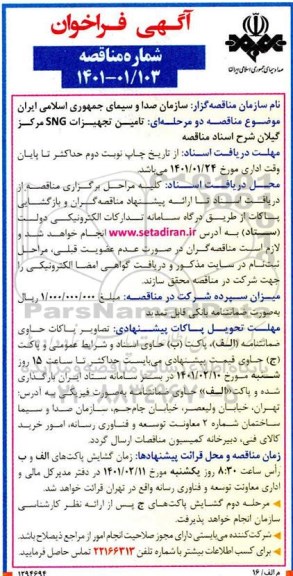 آگهی فراخوان
شماره مناقصه
۱۴۰۱-۰۱/۱۰۳
صدا و سیمای جمهوری اسلامی ایران
نام سازمان مناقصه‌گزار: سازمان صدا و سیمای جمهوری اسلامی ایران
موضوع مناقصه دو مرحله‌ای: تامین تجهیزات SNG مرکز
گیلان شرح اسناد مناقصه
مهلت دریافت اسناد: از تاریخ چاپ نوبت دوم حداکثر تا پایان
وقت اداری مورخ ۱۴۰۱/۰۱/۲۴ می‌باشد.
محل دریافت اسناد: کلیه مراحل برگزاری مناقصه از
دریافت اسناد تا ارائه پیشنهاد مناقصه‌گران و بازگشایی
پاکات از طریق درگاه سامانه تدارکات الکترونیکی دولت
(ستاد) به آدرس www.setadiran.ir انجام خواهد شد و
لازم است مناقصه‌گران در صورت عدم عضویت قبلی، مراحل
ثبت‌نام در سایت مذکور و دریافت گواهی امضا الکترونیکی را
جهت شرکت در مناقصه محقق سازند.
میزان سپرده شرکت در مناقصه: مبلغ ۱/۰۰۰/۰۰۰/۰۰۰ ریال
به‌صورت ضمانتنامه بانکی قابل تمدید
مهلت تحویل پاکات پیشنهادی: تصاویر پاکات حاوی
ضمانتنامه (الف)، پاکت (ب) حاوی اسناد و شرایط عمومی و پاکت
(ج) حاوی قیمت پیشنهادی می‌بایست حداکثر تا ساعت ۱۵ روز
شنبه مورخ ۱۴۰۱/۰۲/۱۰ در بستر سامانه ستاد ایران بارگذاری
شده و پاکت (الف) حاوی ضمانتنامه به‌صورت فیزیکی به آدرس:
تهران، خیابان ولیعصر، خیابان جام‌جم، سازمان صدا و سیما
ساختمان شماره ۲ معاونت توسعه و فناوری رسانه، امور خرید
کالای فنی، دبیرخانه کمیسیون مناقصات ارسال گردد.
زمان مناقصه و محل قرائت پیشنهادها: زمان گشایش پاکت‌های الف و ب
رأس ساعت ۸:۳۰ روز یکشنبه مورخ ۱۴۰۱/۰۲/۱۱ در دفتر مدیرکل مالی و
اداری معاونت توسعه و فناوری رسانه واقع در تهران قرائت خواهد شد.
مرحله دوم گشایش پاکت‌های ج پس از ارائه نظر کارشناسی
سازمان انجام خواهد پذیرفت.
شرکت‌کننده می‌بایستی دارای مجوز صلاحیت انجام امور از مراجع ذیصلاح باشد.
برای کسب اطلاعات بیشتر با شماره تلفن ۲۲۱۶۶۳۱۳ تماس حاصل فرمایید.
م الف/ ۱۶
۱۲۹۴۶۹۴